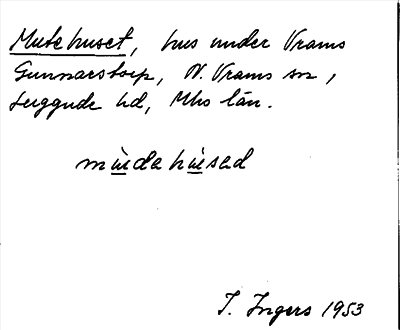 Mutehuset, hus under Vrams
Gunnarstorp, N. Vrams sn,
Luggude hd, Mhs län.
mùdehùsad
I. Ingers 1953